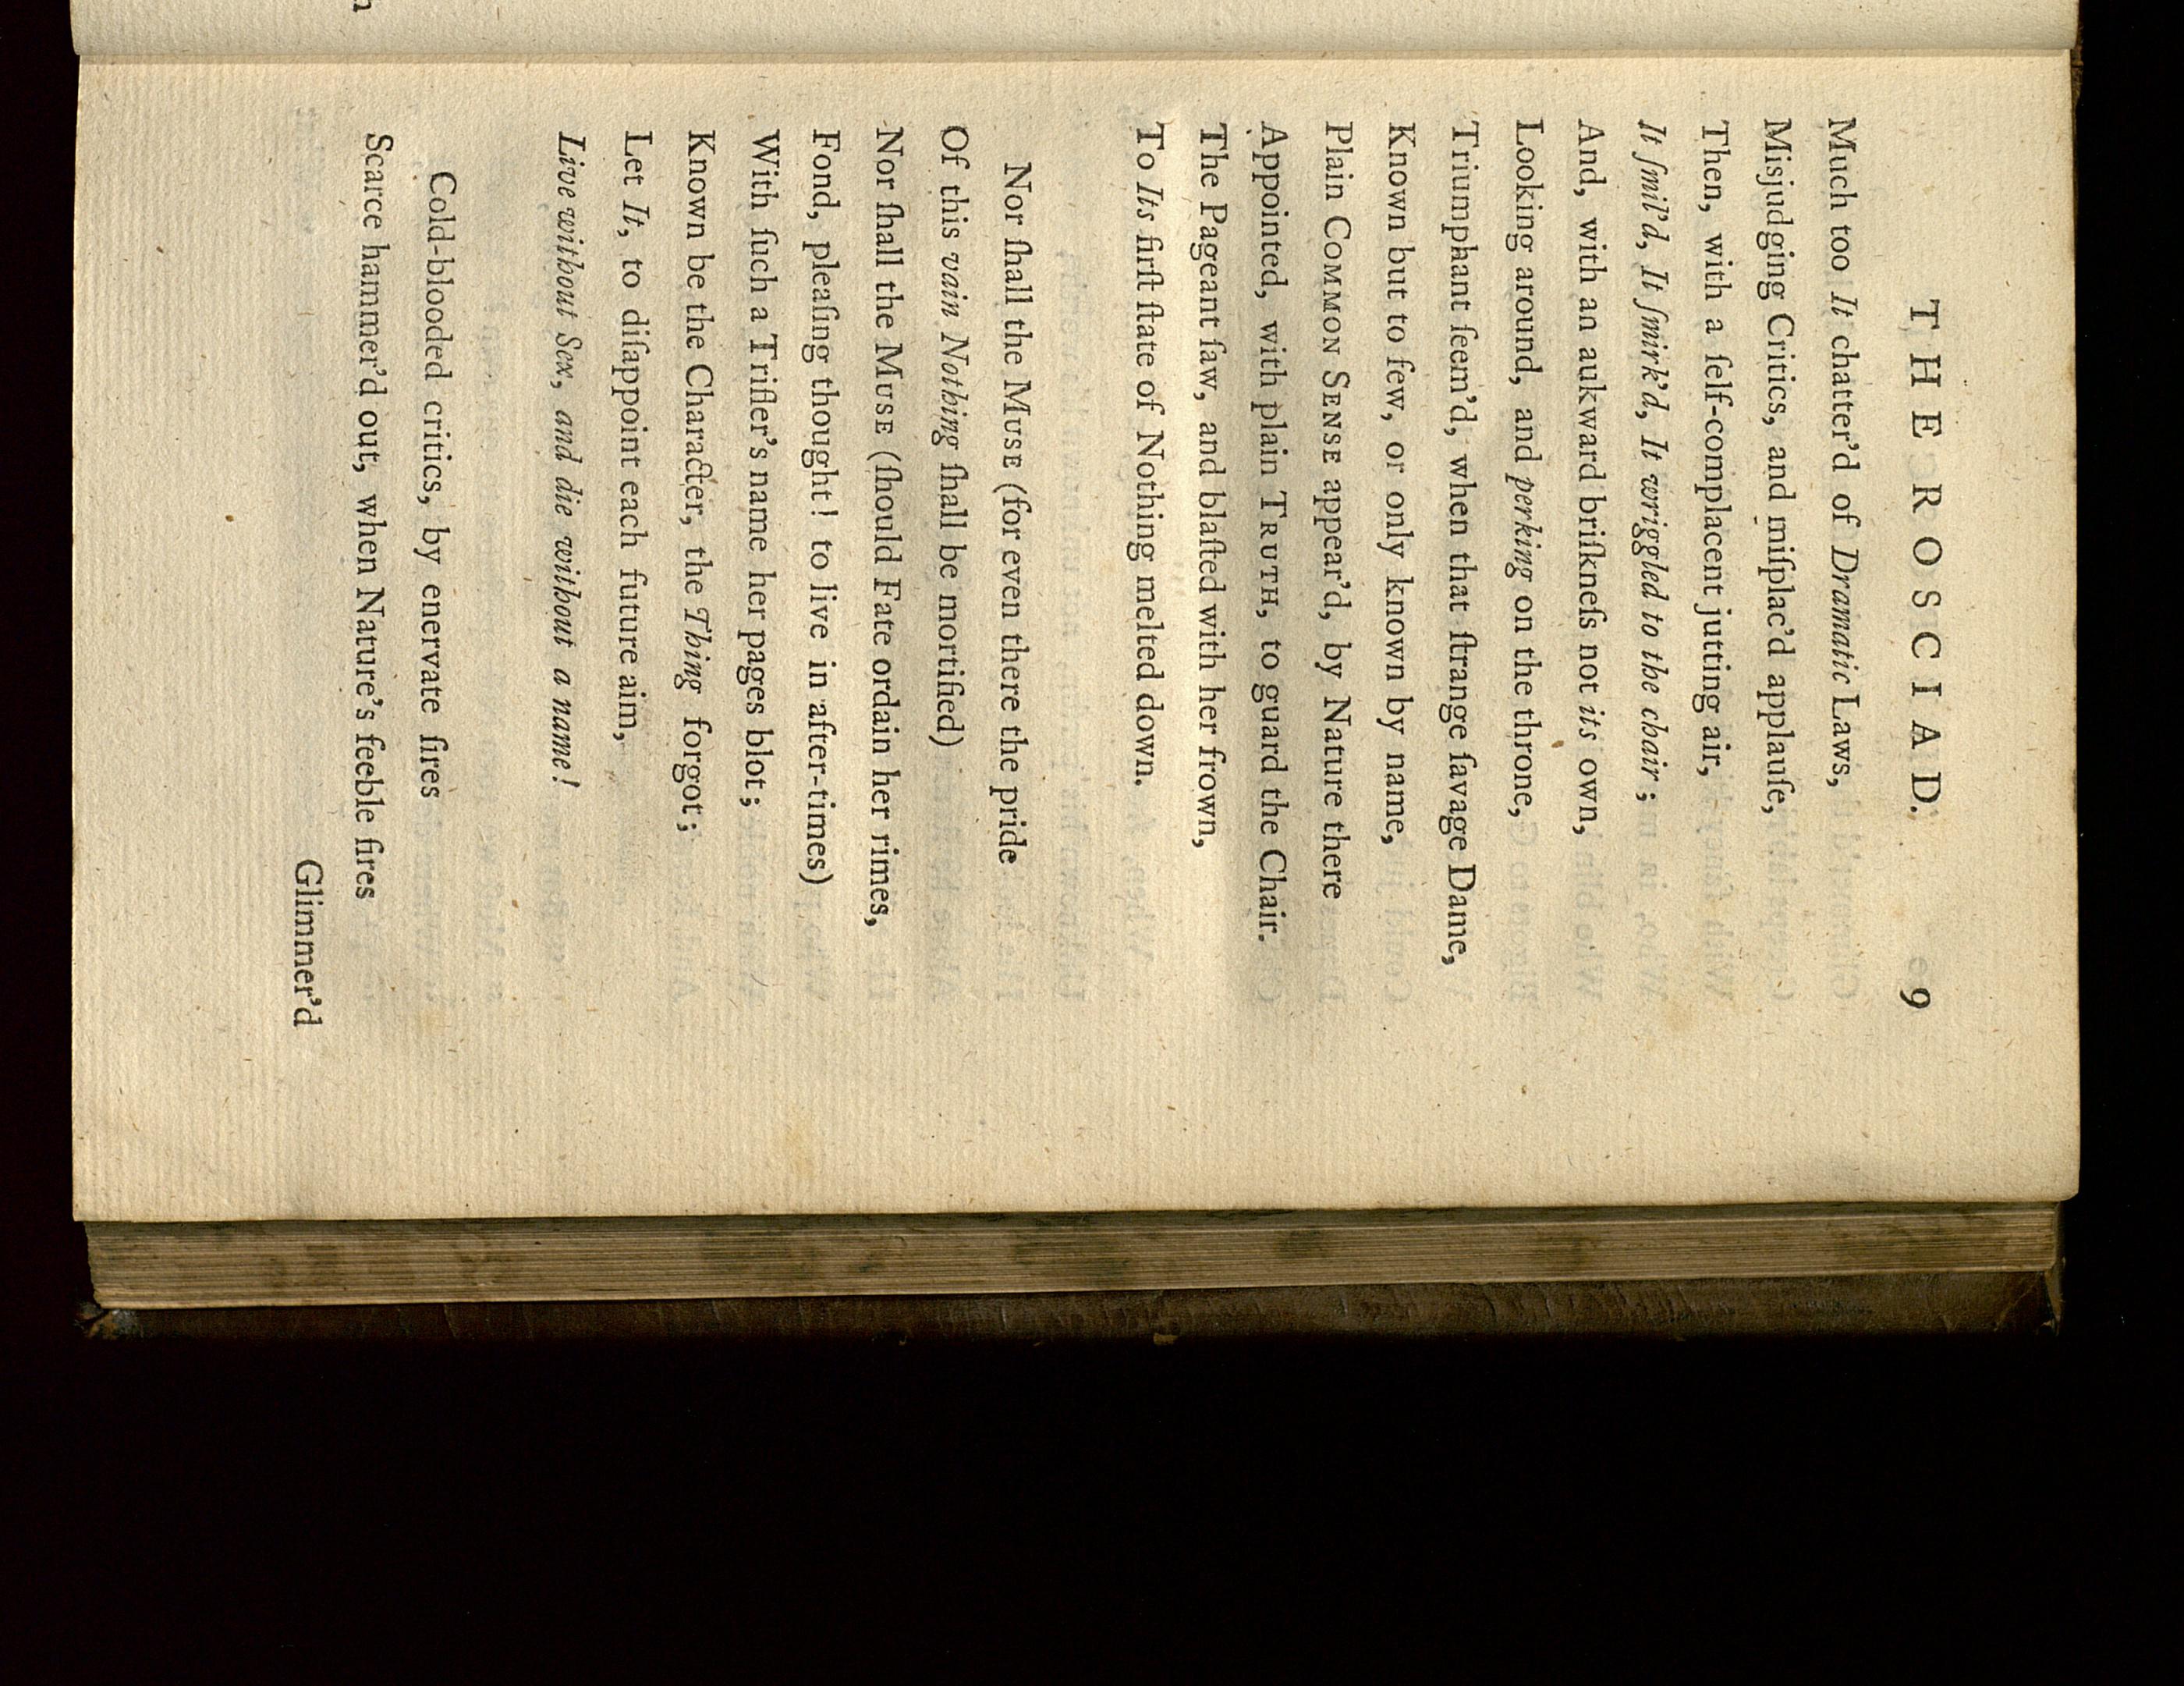 THE ROSCIAD. 9
Much too It chatter'd of Dramatic Laws,
Misjudging Critics, and miſplac'd applauſe,
Then, with a ſelf-complacent jutting air,
It ſmil'd, It ſmirk'd, It wriggled to the chair;
And, with an aukward briſkneſs not its own,
Looking around, and perking on the throne,
Triumphant ſeem'd, when that ſtrange ſavage Dame,
Known but to few, or only known by name,
Plain COMMON SENSE appear'd, by Nature there
Appointed, with plain TRUTH, to guard the Chair.
The Pageant ſaw, and blaſted with her frown,
To Its firſt ſtate of Nothing melted down.
Nor ſhall the MUSE (for even there the pride
Of this vain Nothing ſhall be mortified)
Nor ſhall the MUSE (ſhould Fate ordain her rimes,
Fond, pleaſing thought! to live in after-times)
With ſuch a Trifler's name her pages blot;
Known be the Character, the Thing forgot;
Let It, to diſappoint each future aim,
Live without Sex, and die without a name!
Cold-blooded critics, by enervate fires
Scarce hammer'd out, when Nature's feeble fires
Glimmer'd